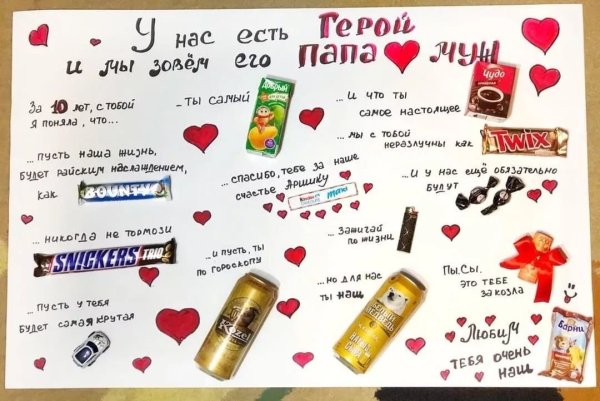 У нас есть Герой
и мы зовём его папа муж
За 10 лет, с тобой
я поняла, что...
- ты самый
Добрый
... и что ты
самое настоящее
Чудо
... пусть наша жизнь,
будет райским наслаждением,
как
BOUNTY
... спасибо, тебе за наше
счастье Аришку
Kinder
maxi
... мы с тобой
неразлучны как
TWIX
... и у нас ещё обязательно
будут
... никогда не тормози
SNICKERS TRIO
... и пусть, ты
по гороскопу
Kozel
... Зажигай
по жизни
... но для нас
ты наш
Пы.Сы.
это тебе
за козла
... пусть у тебя
будет самая крутая
Любим
тебя очень
наш
Барни